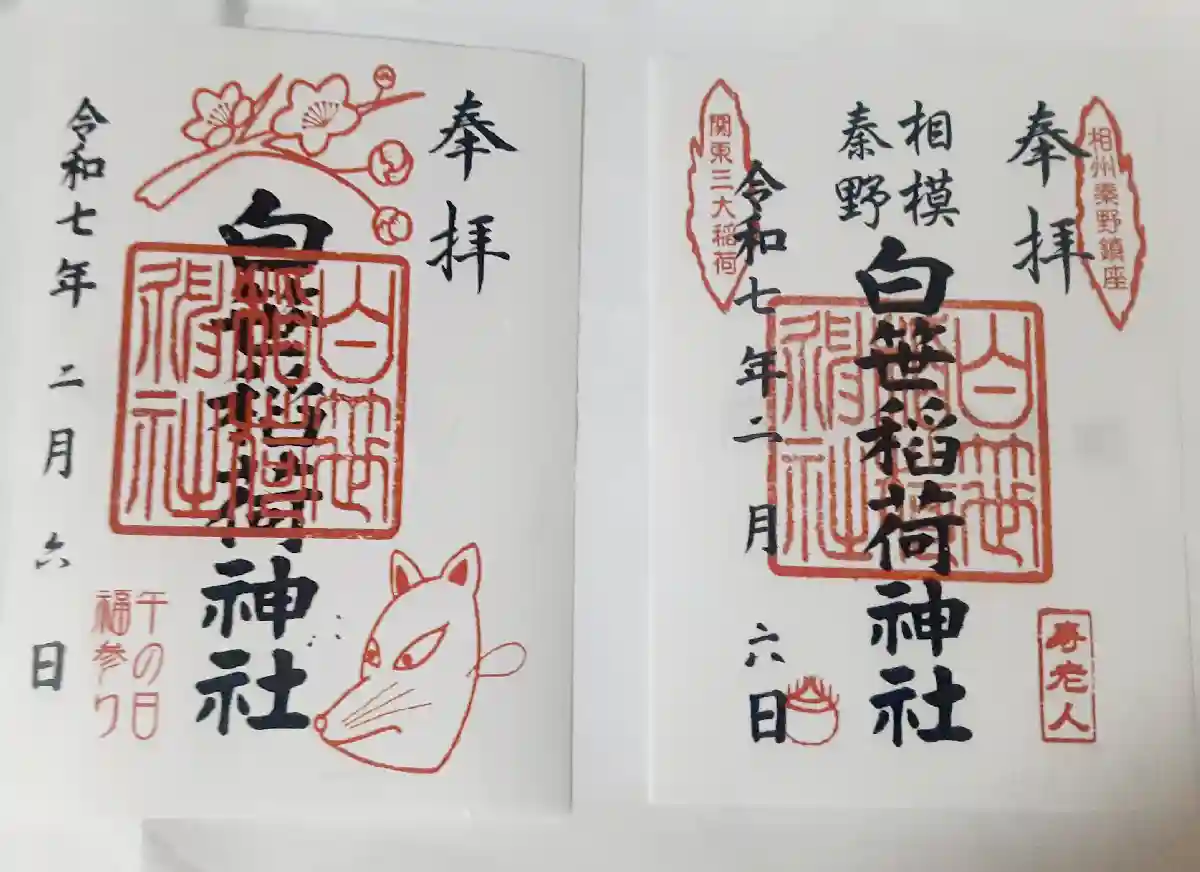 奉拝
白笹稲荷神社
白笹
稲荷
神社
午の日
福参り
令和七年二月六日
相州秦野鎮座
奉拝
相模
秦野
白笹稲荷神社
白笹
稲荷
神社
寿老人
関東三大稲荷
令和七年二月六日